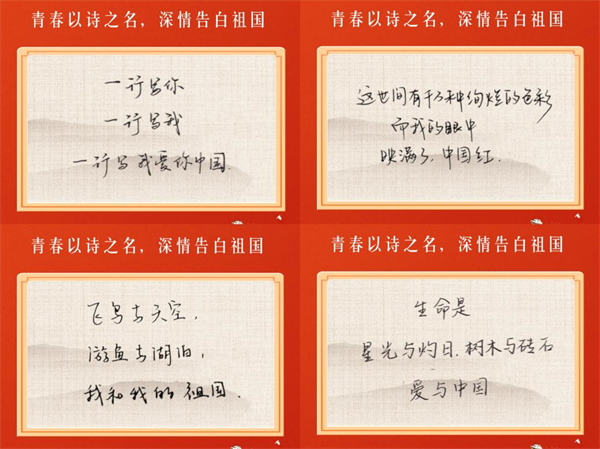 青春以诗之名，深情告白祖国
一行写你
一行写我
一行写我爱你中国.
青春以诗之名，深情告白祖国
这世间有千万种绚烂的色彩
而我的眼中
映满了，中国红.
青春以诗之名，深情告白祖国
飞鸟与天空，
游鱼与湖泊，
我和我的祖国.
青春以诗之名，深情告白祖国
生命是
星光与灼日.树木与砖石
爱与中国